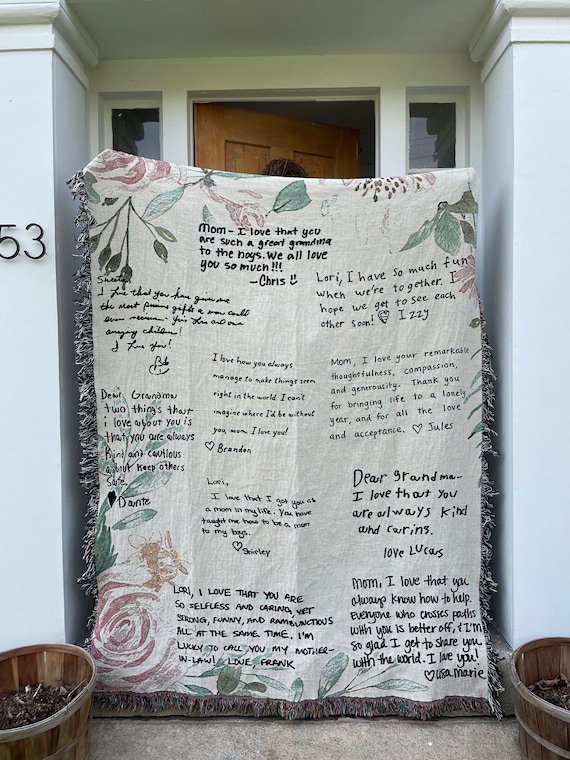 53
Mom - I love that you
are such a great grandma
to the boys. We all love
you so much!!!
- Chris
Lori, I have so much fun
when we're together. I
hope we get to see each
other soon! Izzy
I love that you have given me
the most precious gifts a man could
ever receive. Your love and our
amazing children!
I Love You!
Bob
I love how you always
manage to make things seem
right in the world. I can't
imagine where I'd be without
you, mom. I love you!
♡ Brandon
Mom, I love your remarkable
thoughtfulness, compassion,
and generousity. Thank you
for bringing life to a lonely
year, and for all the love
and acceptance. ♡ Jules
Dear Grandma
two things that
i love about you is
that you are always
Kind and cautious
about keep others
safe.
♥ Dante
Lori,
I love that I got you as
a mom in my life. You have
taught me how to be a mom
to my boys.
♡ Shirley
Dear grandma-
I love that you
are always kind
and caring.
love Lucas
LORI, I LOVE THAT YOU ARE
SO SELFLESS AND CARING, YET
STRONG, FUNNY, AND RAMBUNCTIOUS
ALL AT THE SAME TIME. I'M
LUCKY TO CALL YOU MY MOTHER-
IN-LAW! LOVE, FRANK
Mom, I love that you
always know how to help.
Everyone who crosses paths
with you is better off, & I'm
so glad I get to share you
with the world. I love you!
♡ Lisa Marie